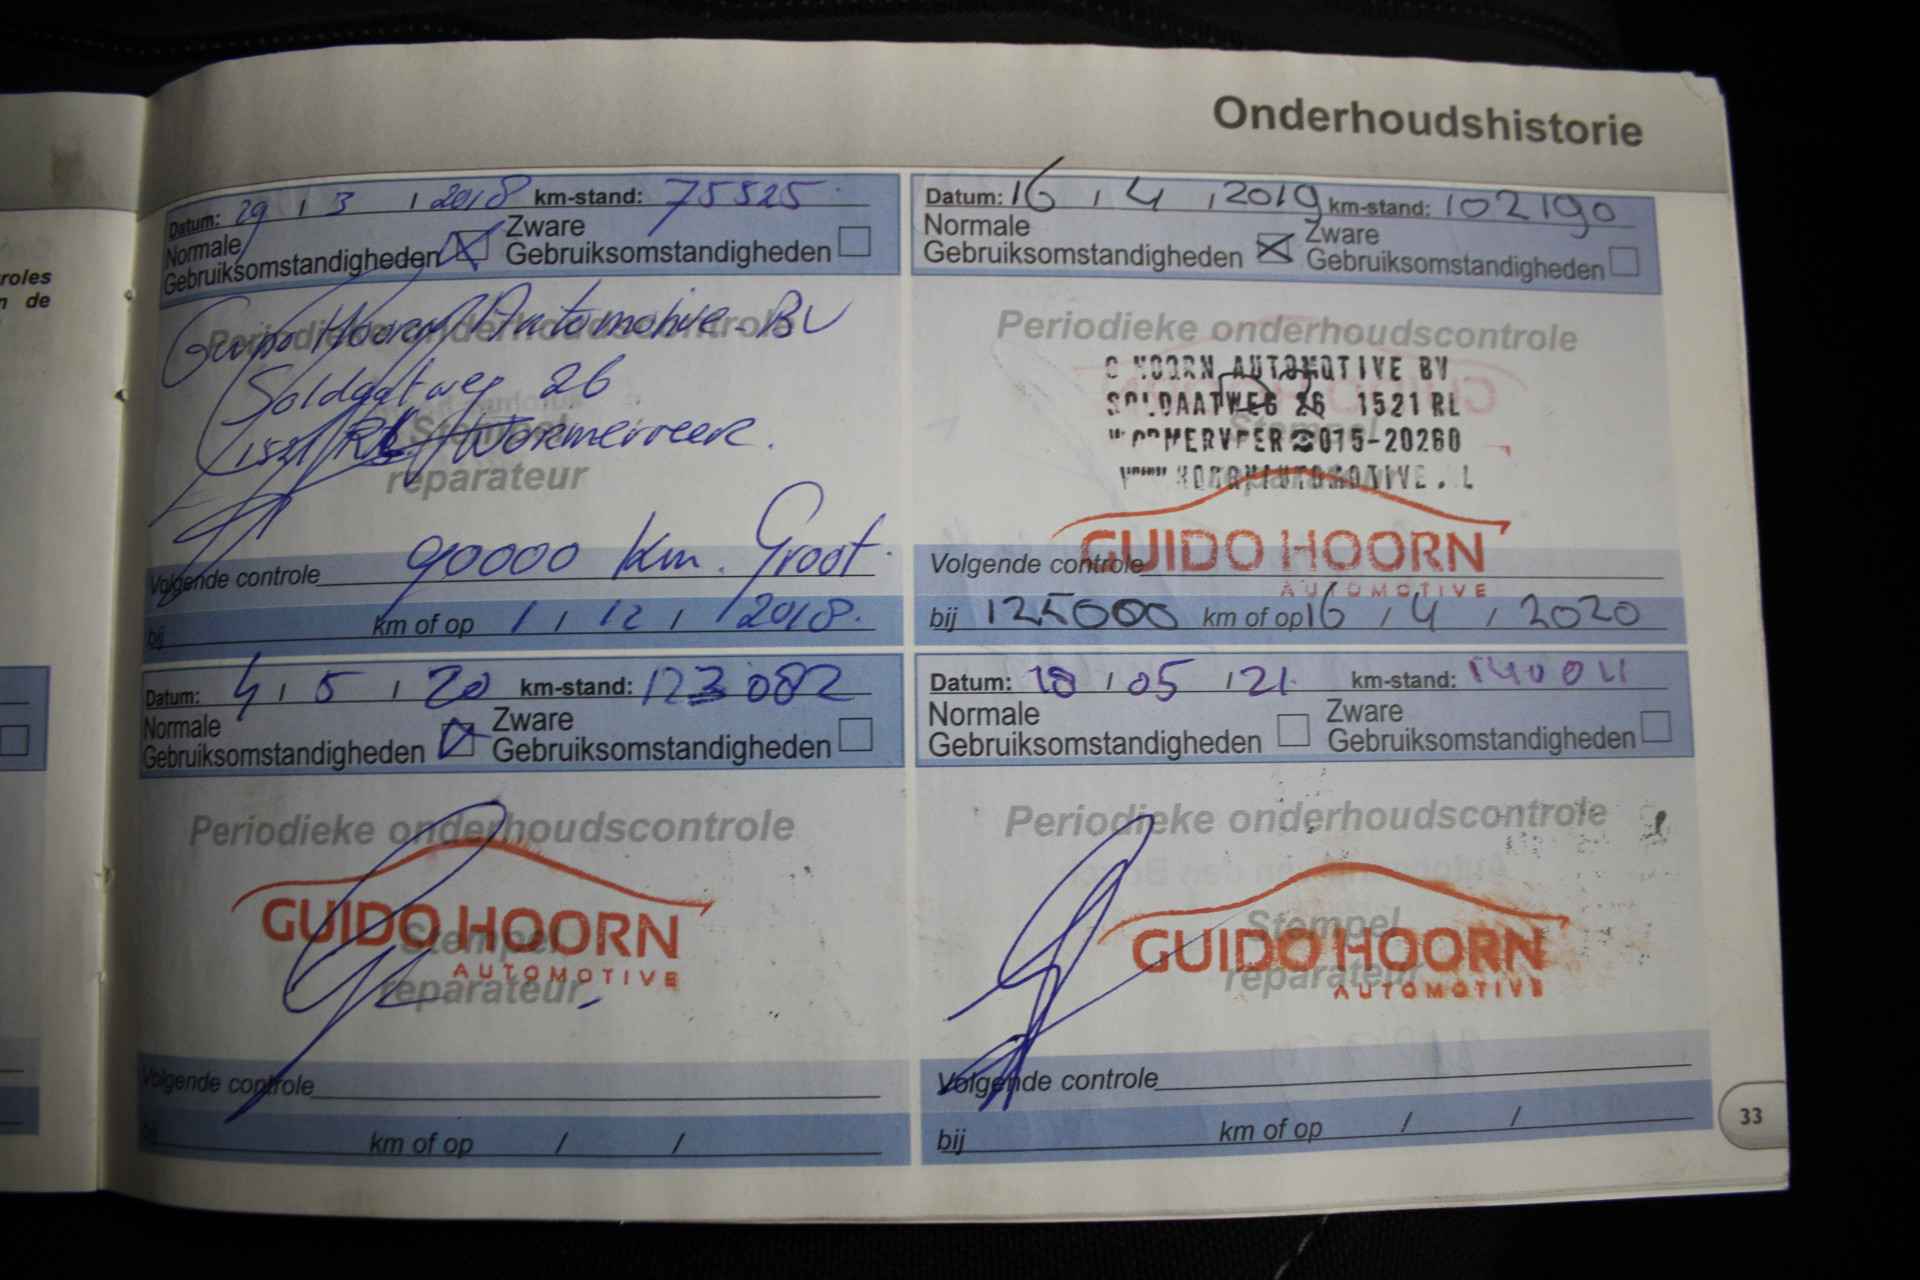 Onderhoudshistorie
roles
n de
Datum: 29 / 3 / 2018 km-stand: 75525
Normale
Gebruiksomstandigheden
Zware
Gebruiksomstandigheden
Periodieke onderhoudscontrole
Guido Hoorn Automotive BV
Soldaatweg 26
Stempel
1521 RL Wormerveer.
reparateur
Volgende controle 90000 km. Groot.
bij km of op 1 / 12 / 2018.
Datum: 16 / 4 / 2019 km-stand: 102190
Normale
Gebruiksomstandigheden
Zware
Gebruiksomstandigheden
Periodieke onderhoudscontrole
G HOORN AUTOMOTIVE BV
SOLDAATWEG 26 1521 RL
WORMERVEER 075-20260
GUIDO HOORN
AUTOMOTIVE
Volgende controle
bij 125000 km of op 16 / 4 / 2020
Datum: 4 / 5 / 20 km-stand: 123082
Normale
Gebruiksomstandigheden
Zware
Gebruiksomstandigheden
Periodieke onderhoudscontrole
GUIDO HOORN
AUTOMOTIVE
Stempel
reparateur
Volgende controle
bij km of op / /
Datum: 18 / 05 / 21 km-stand:
Normale
Gebruiksomstandigheden
Zware
Gebruiksomstandigheden
Periodieke onderhoudscontrole
Stempel
GUIDO HOORN
reparateur
AUTOMOTIVE
Volgende controle
bij km of op / /
33